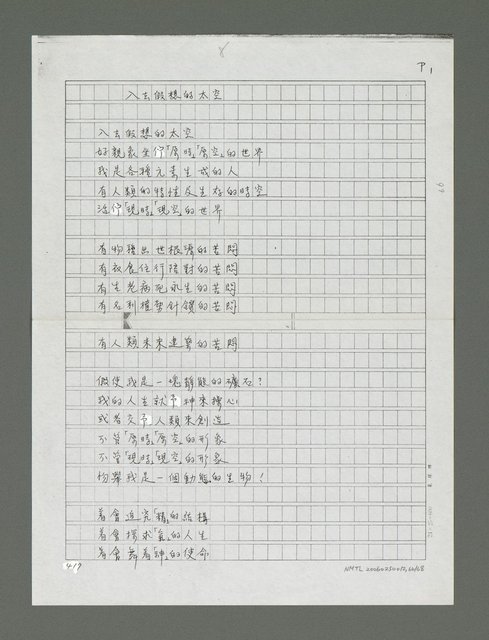 8
P1
入去假想的太空
入去假想的太空
好親象坐佇「厝時」「厝空」的世界
我是各種元素生成的人
有人類的特性及生存的時空
活佇「現時」「現空」的世界
有物種出世根源的苦悶
有衣食住行陪對的苦悶
有生老病死永生的苦悶
有名利權勢針鑽的苦悶
有人類未來遠景的苦悶
假使我是一塊靜態的礦石?
我的人生就予神來操心
或者交予人類來創造
不管「厝時」「厝空」的形象
不管「現時」「現空」的形象
抑毋我是一個動態的生物!
着會追究「精」的結構
着會探求「氣」的人生
着會舞着「神」的使命
417
NMTL 20060250012, 66/68
66